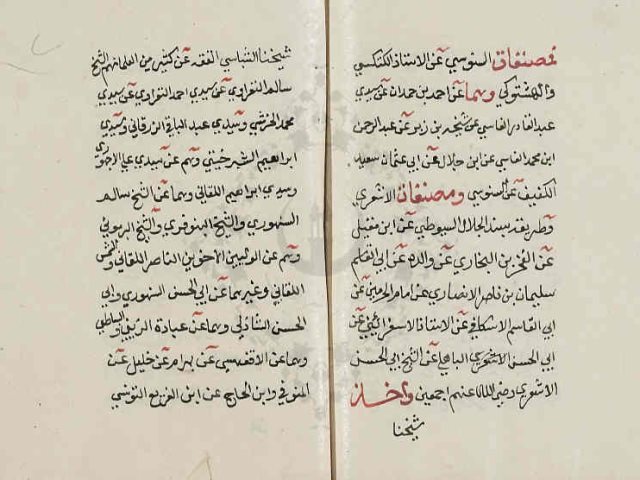 فمصنفات السنوسي عن الاستاذ الكنكسي
والهشتوكي وهما عن احمد بن حمدان عن سيدي
عبد القادر الفاسي عن شيخه بن زيد عن عبد الرحمن
ابن محمد الفاسي عن ابن جلال عن ابي عثمان سعيد
الكفيف عن السنوسي ومصنفات الاشعري
وطريقه بسند الجلال السيوطي عن ابن مقبل
عن الفخر بن البخاري عن والده عن ابي القاسم
سليمان بن ناصر الانصاري عن امام الحرمين عن
ابي القاسم الاسكافي عن الاستاذ الاسفرائيني عن
ابي الحسن الاشعري الباهلي عن الشيخ ابي الحسن
الاشعري رضي الله عنهم اجمعين واخذ
شيخنا
شيخنا الشباسي الفقه عن كثير من العلماء منهم الشيخ
سالم النفراوي عن سيدي احمد النفراوي عن سيدي
محمد الخرشي وسيدي عبد الباقي الزرقاني وسيدي
ابراهيم الشبرخيتي وهم عن سيدي علي الاجهوري
وسيدي ابراهيم اللقاني وهما عن الشيخ سالم
السنهوري والشيخ البنوفري والشيخ البرموني
وهم عن الوليين الاخوين الناصر اللقاني والشمس
اللقاني وغيرهما عن ابي الحسن السنهوري وابي
الحسن الشاذلي وهما عن عبادة الزيني والبساطي
وهما عن الاقفهسي عن بهرام عن خليل عن
المنوفي وابن الحاج عن ابن القوبع التونسي